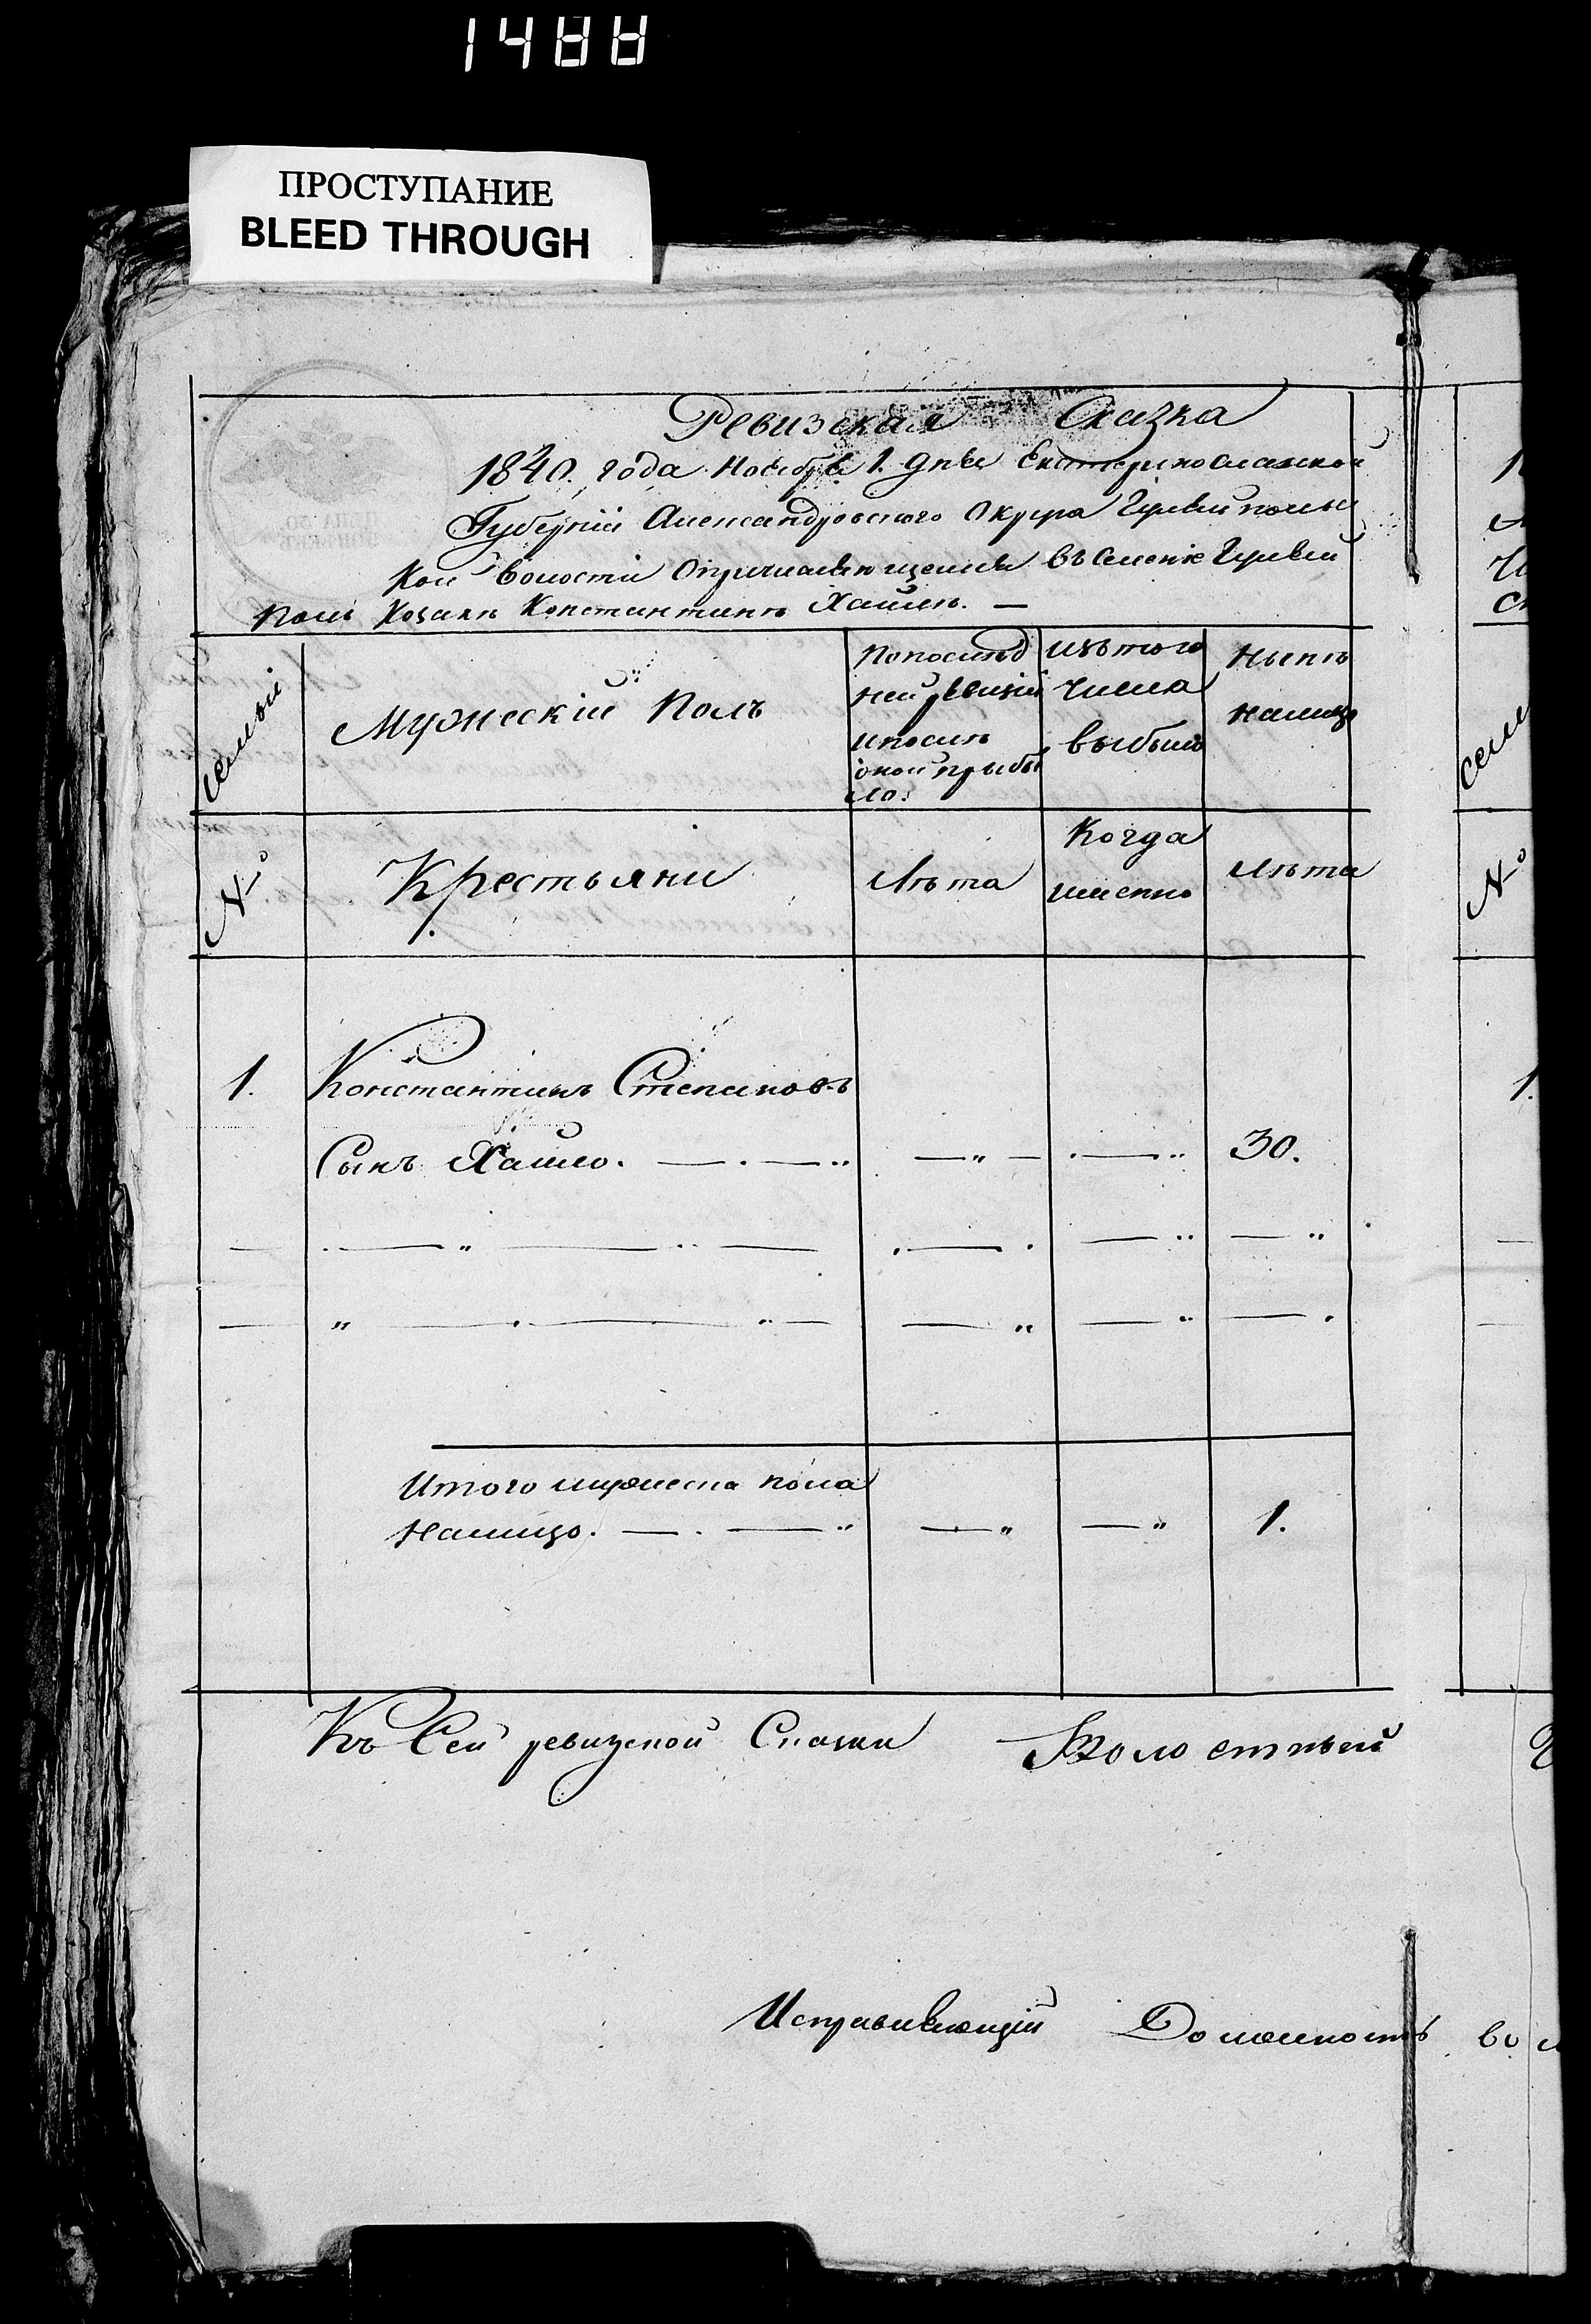 1488
ПРОСТУПАНИЕ
BLEED THROUGH
Ревизская Сказка
1840. года Ноебря 1. дня Екатеринославской
Губерніи Александровского Округа Гуляйполь
кой Волости въ Селеніе Гуляй
поли Козакъ Константинъ Хайло. —
Семьи
Мужескій Полъ
Попослѣд
ней ревизіи
ипослѣ
оной прыбы
ло:
изътого
числа
выбыло
Нынѣ
налицо
семьи
№
Крестьяни
Лѣта
Когда
именно
Лѣта
№
1. Константинъ Степановъ
Сынъ Хайло. 30.
1.
Итого мужеска пола
Налицо. 1.
Къ Сей ревизской Сказки Волостный
Исправляющій Должность